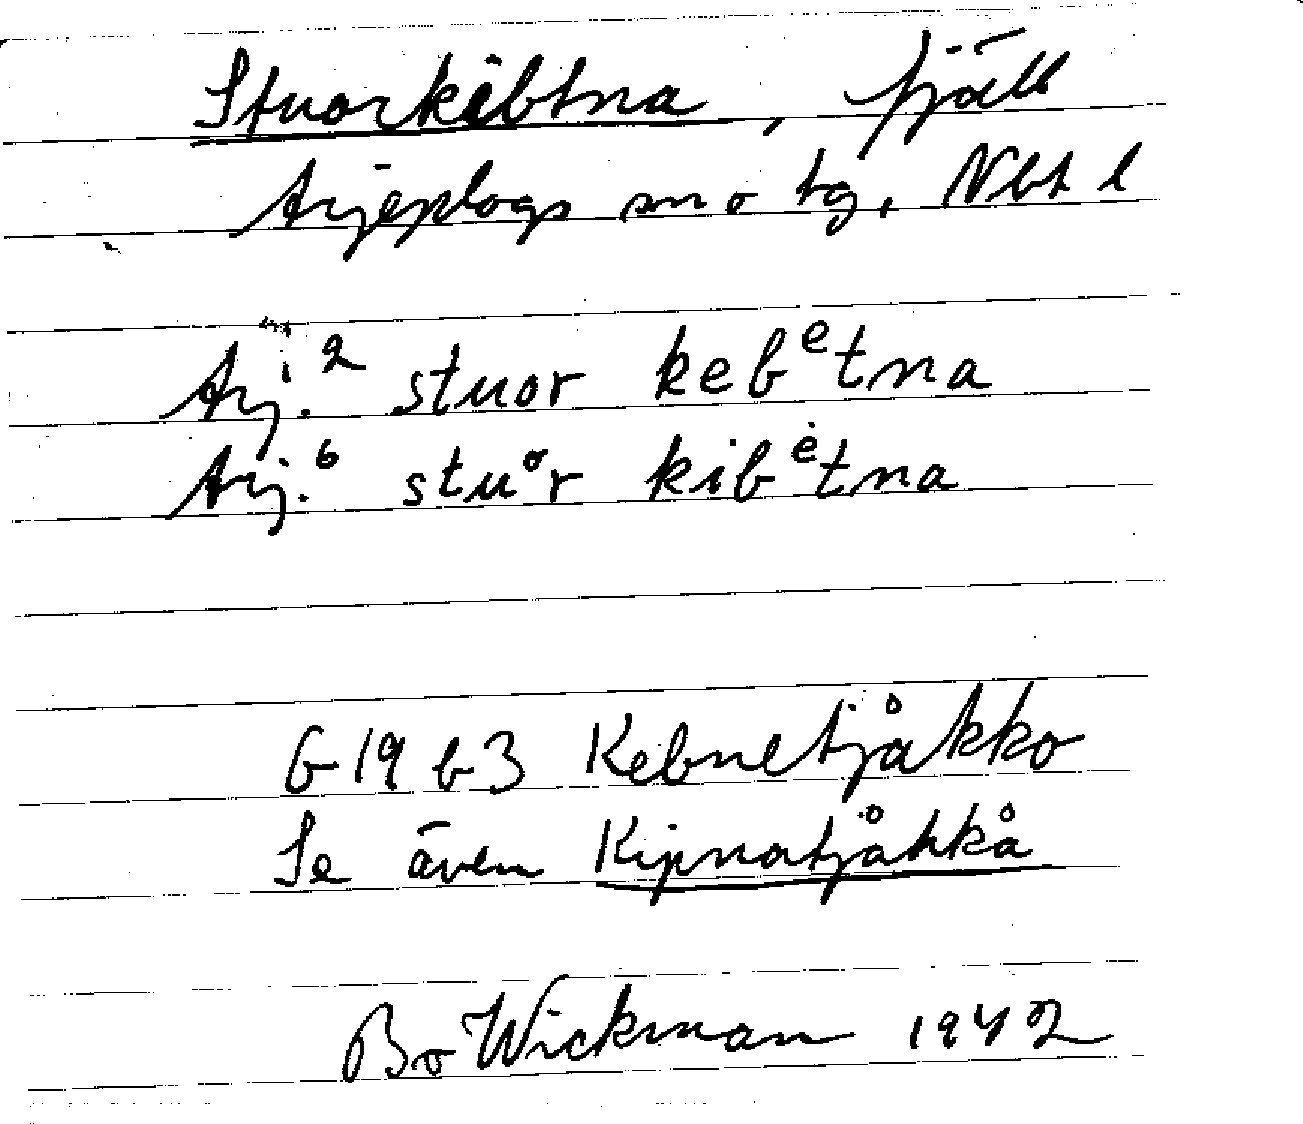 Stuorkebtna, fjäll
Arjeplogs sn o tg, Nbt l
Arj.² stuor kebᵉtna
Arj.⁶ stuᵒr kibᵉ̇tna
G 19 b 3 Kebnetjåkko
Se även Kipnatjåhkå
Bo Wickman 1942